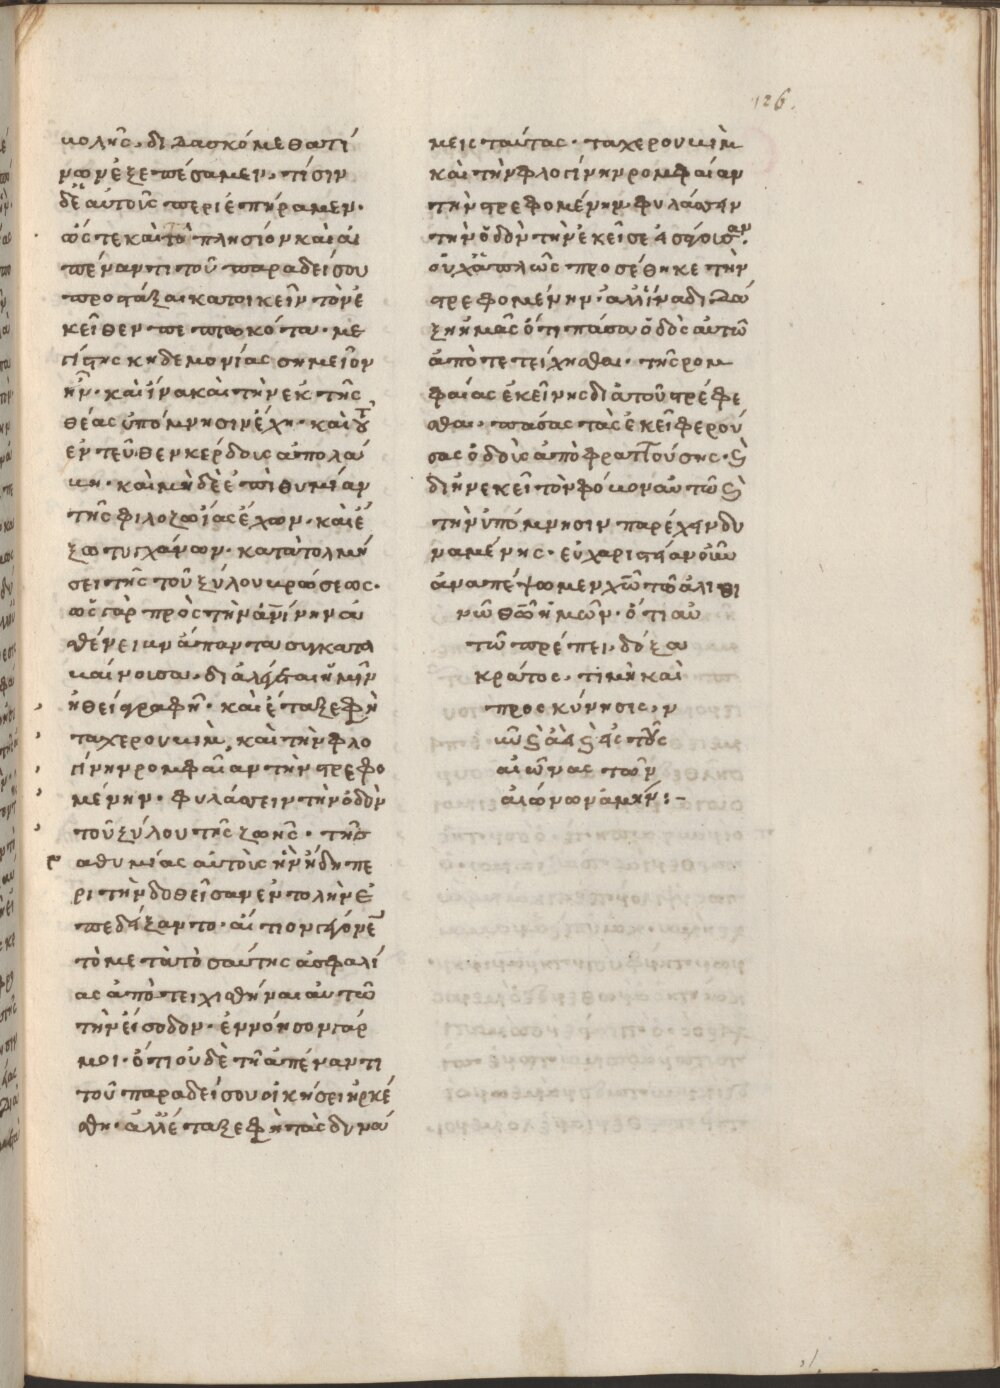 126.
βολῆς. διδασκόμεθα τί
νων ἐξεπέσαμεν. τίσιν
δὲ αὐτοὺς περιεπήραμεν.
ὥς τε καὶ τὸ πλησίον καὶ ἀ
πέναντι τοῦ παραδείσου
προστάξαι κατοικεῖν τὸν ἐ
κεῖθεν πεπτωκότα. με
γίστης κηδεμονίας σημεῖον
ἦν. καὶ ἵνα καὶ τὴν ἐκ τῆς
θέας ὑπόμνησιν ἔχη. καὶ τ
ἐντεῦθεν κέρδους ἀπολαύ
βη. καὶ μὴ δὲ ἐπιθυμίαν
τῆς φιλοζωΐας ἔχων. καὶ ἔ
ξω τυγχάνων. κατατολμή
σει τῆς τοῦ ξύλου βρώσεως.
ὡς γὰρ πρὸς τὴν ἀνίνην ἀ
σθένειαν ἅπαντα συγκατα
βαίνουσα. διαλέγεται ἡμῖν
ἡ θεία γραφή. καὶ ἔταξε φη
τὰ χερουβὶμ, καὶ τὴν φλο
γίνην ρομφαίαν τὴν στρεφο
μένην. φυλάσσειν τὴν ὁδὸν
τοῦ ξύλου τῆς ζωῆς. τῆς
ραθυμίας αὐτοὺς ἣν ἤδη πε
ρὶ τὴν δοθεῖσαν ἐντολὴν ἐ
πεδείξαντο. αἴτιον γέγονε
τὸ μετὰ τοσαύτης ἀσφαλεί
ας ἀποτειχισθῆναι αὐτῶ
τὴν εἴσοδον. ἐννόησον γάρ
μοι. ὅτι οὐδὲ τῆ ἀπέναντι
τοῦ παραδείσου οἰκήσει ἠρκέ
σθη. ἀλλ' ἔταξε φη τὰς δυνά
μεις ταύτας. τὰ χερουβὶμ
καὶ τὴν φλογίνην ρομφαίαν
τὴν στρεφομένην φυλάσσειν
τὴν ὁδὸν τὴν ἐκεῖσε εἰσάγουσαν.
οὐχ ἁπλῶς προσέθηκε τὴν
στρεφομένην. ἀλλ' ἵνα διδά
ξη ἡμᾶς ὅτι πᾶσα ὁδὸς αὐτῶ
ἀποτετείχισθαι. τῆς ρομ
φαίας ἐκείνης διὰ τοῦ στρέφε
σθαι. πάσας τὰς ἐκεῖ φερού
σας ὁδοὺς ἀποφραττούσης. καὶ
διηνεκεῖ τὸν φόβον αὐτῶ καὶ
τὴν ὑπόμνησιν παρέχειν δυ
ναμένης. εὐχαριστίαν οὖν
ἀναπέμψωμεν χῶ τῶ ἀληθι
νῶ θῶ ἡμῶν. ὅτι αὐ
τῶ πρέπει. δόξα
κράτος. τιμὴ καὶ
προσκύνησις, ν
ῦν καὶ ἀεὶ καὶ εἰς τοὺς
αἰῶνας τῶν
αἰώνων ἀμήν:-